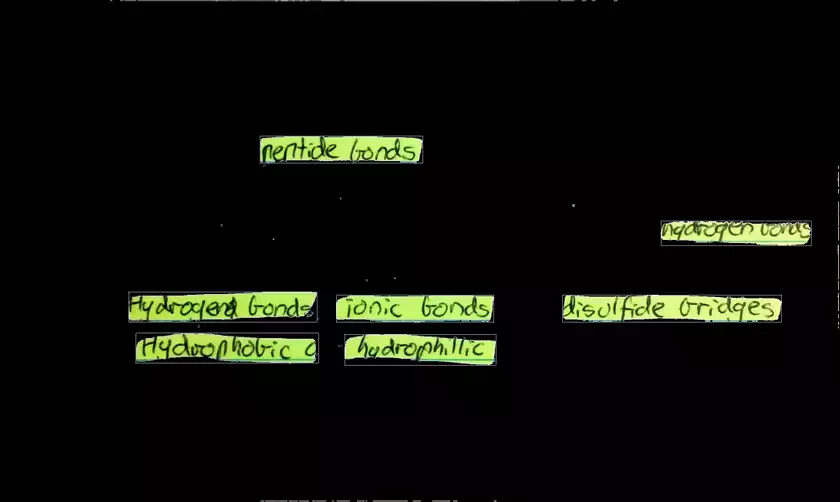 peptide bonds
hydrogen bonds
Hydrogend bonds ionic bonds disulfide bridges
Hydrophobic hydrophillic